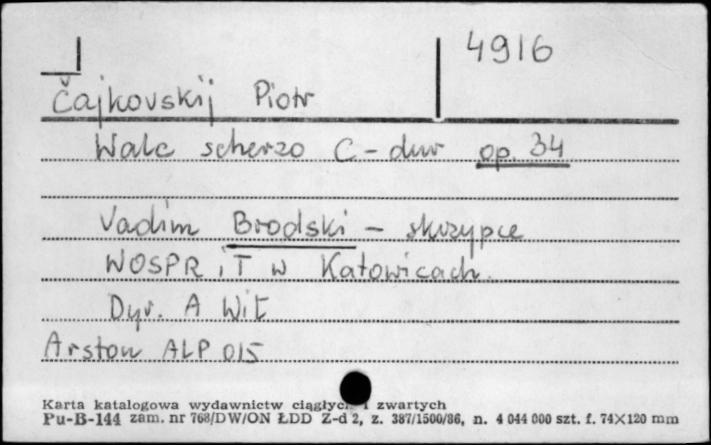 4916
Čajkovskij Piotr
Walc scherzo C-dur op. 34
Vadim Brodski - skrzypce
WOSPR i T w Katowicach.
Dyr. A Wit
Arston ALP 015
Karta katalogowa wydawnictw ciągłych i zwartych
Pu-B-144 zam. nr 768/DW/ON ŁDD Z-d 2, z. 387/1500/86, n. 4 044 000 szt. f. 74X120 mm